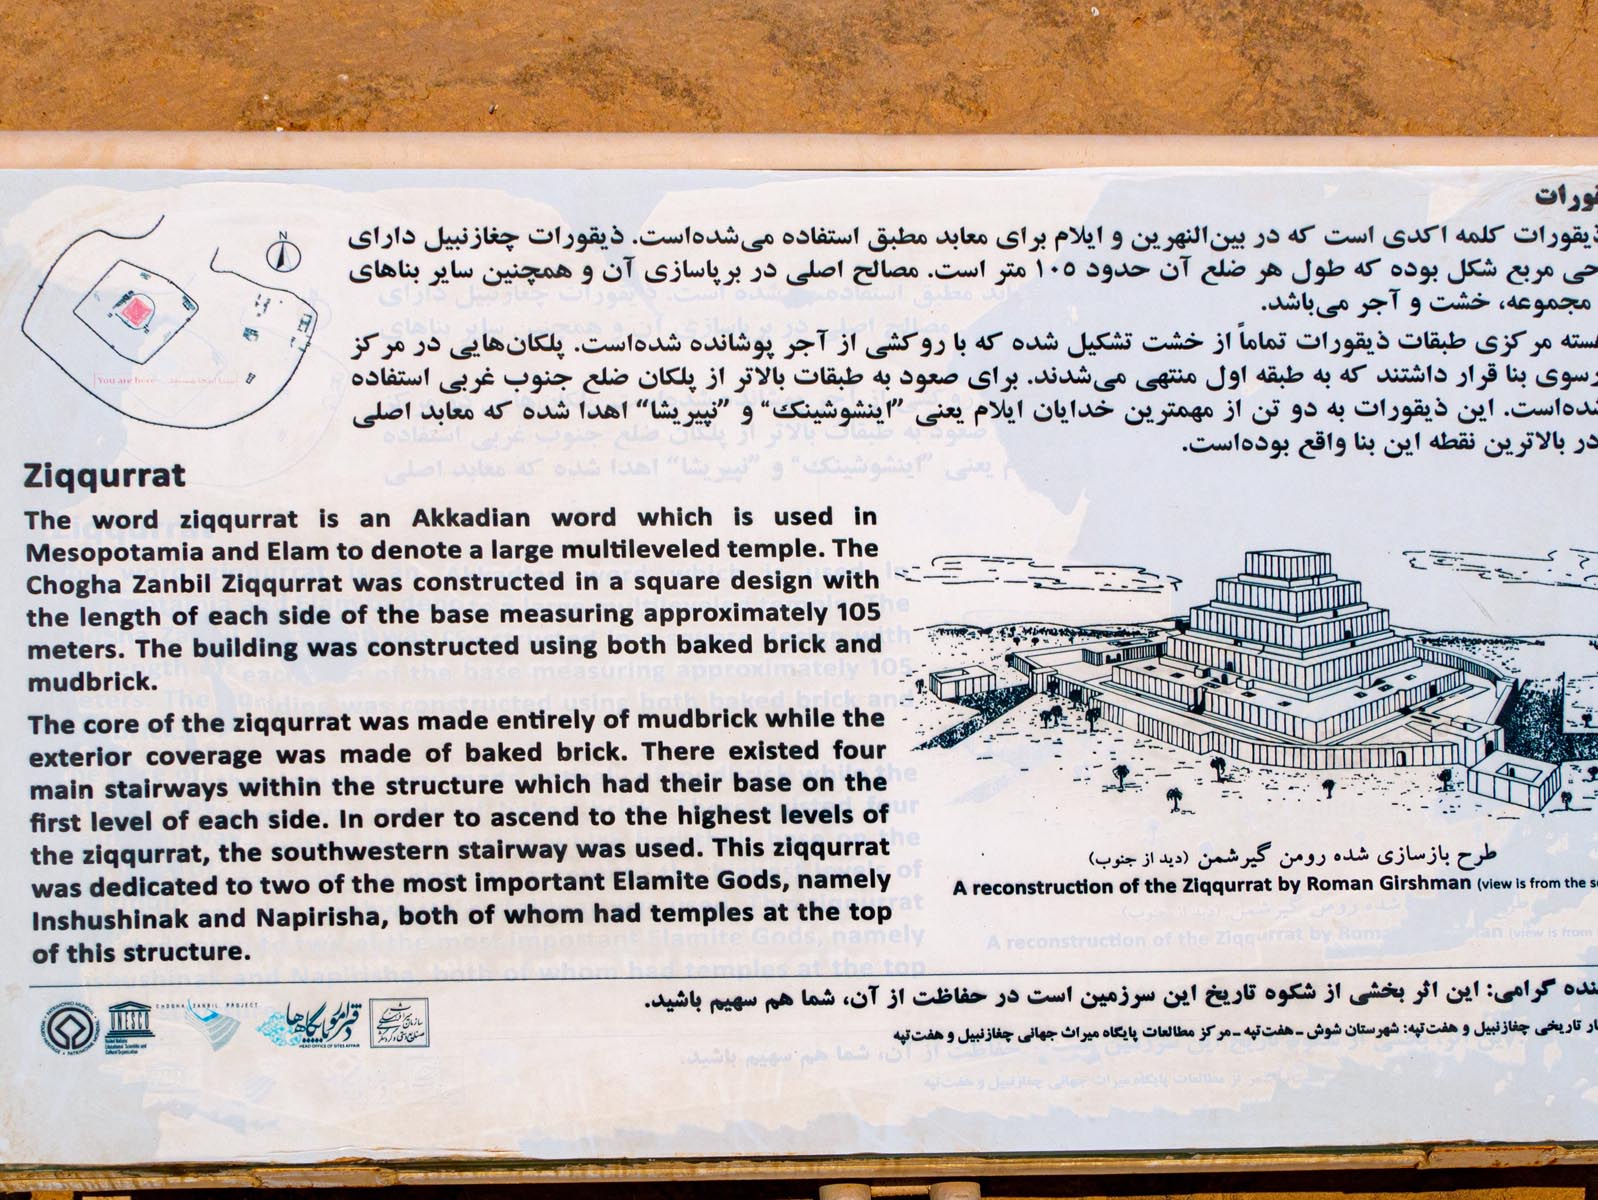 ذیقورات کلمه اکدی است که در بین‌النهرین و ایلام برای معابد مطبق استفاده می‌شده‌است. ذیقورات چغازنبیل دارای
مربع شکل بوده که طول هر ضلع آن حدود ۱۰۵ متر است. مصالح اصلی در برپاسازی آن و همچنین سایر بناهای
مجموعه، خشت و آجر می‌باشد.
مرکزی طبقات ذیقورات تماماً از خشت تشکیل شده که با روکشی از آجر پوشانده شده‌است. پلکان‌هایی در مرکز
بنا قرار داشتند که به طبقه اول منتهی می‌شدند. برای صعود به طبقات بالاتر از پلکان ضلع جنوب غربی استفاده
شده‌است. این ذیقورات به دو تن از مهمترین خدایان ایلام یعنی ”اینشوشینک“ و ”نپیریشا“ اهدا شده که معابد اصلی
در بالاترین نقطه این بنا واقع بوده‌است.
N
You are here
Ziqqurrat
The word ziqqurrat is an Akkadian word which is used in
Mesopotamia and Elam to denote a large multileveled temple. The
Chogha Zanbil Ziqqurrat was constructed in a square design with
the length of each side of the base measuring approximately 105
meters. The building was constructed using both baked brick and
mudbrick.
The core of the ziqqurrat was made entirely of mudbrick while the
exterior coverage was made of baked brick. There existed four
main stairways within the structure which had their base on the
first level of each side. In order to ascend to the highest levels of
the ziqqurrat, the southwestern stairway was used. This ziqqurrat
was dedicated to two of the most important Elamite Gods, namely
Inshushinak and Napirisha, both of whom had temples at the top
of this structure.
طرح بازسازی شده رومن گیرشمن (دید از جنوب)
A reconstruction of the Ziqqurrat by Roman Girshman (view is from the
گرامی: این اثر بخشی از شکوه تاریخ این سرزمین است در حفاظت از آن، شما هم سهیم باشید.
تاریخی چغازنبیل و هفت‌تپه: شهرستان شوش - هفت‌تپه - مرکز مطالعات پایگاه میراث جهانی چغازنبیل و هفت‌تپه
UNESCO
United Nations
Educational, Scientific and
Cultural Organization
CHOGHA ZANBIL PROJECT
HEAD OFFICE OF SITES AFFAIR